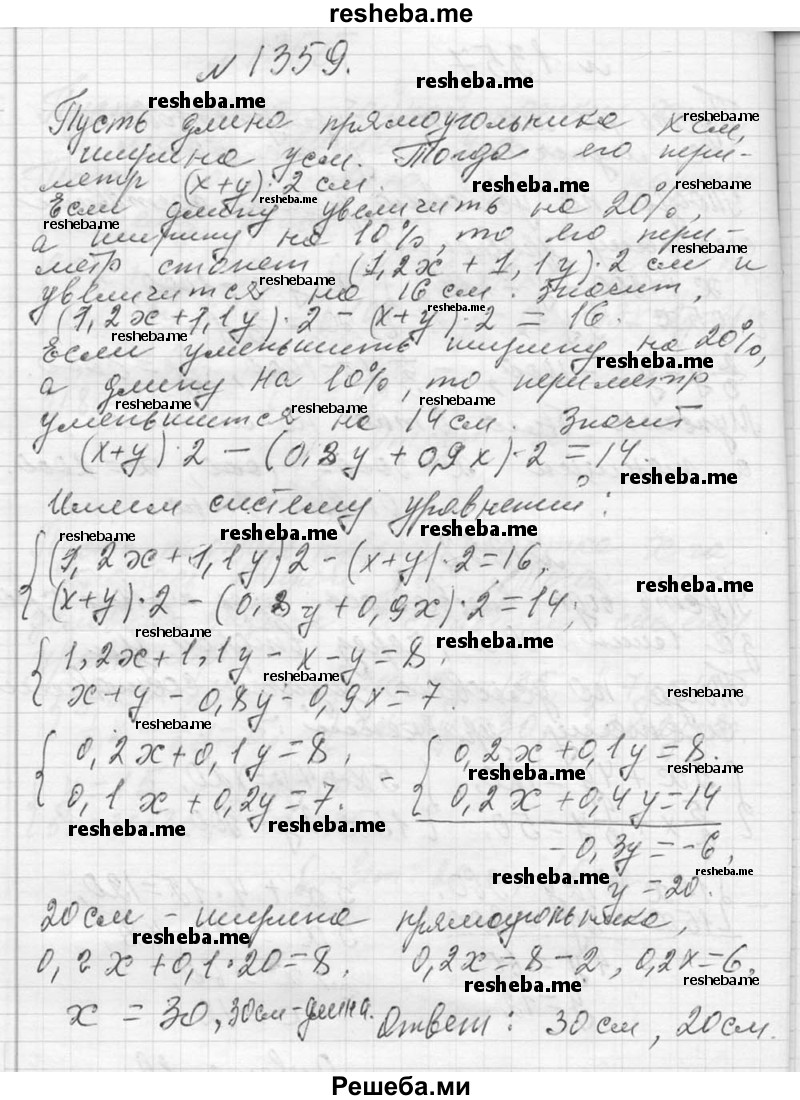 resheba.me
N 1359.
resheba.me resheba.me
Пусть длина прямоугольника x см, resheba.me
ширина y см. Тогда его пери-
метр (x+y)·2 см. resheba.me resheba.me
Если длину увеличить на 20%, resheba.me
resheba.me
а ширину на 10%, то его пери-
метр станет (1,2x + 1,1y)·2 см и resheba.me
увеличится на 16 см. Значит, resheba.me
(1,2x+1,1y)·2 – (x+y)·2 = 16. resheba.me
resheba.me
Если уменьшить ширину на 20%, resheba.me
а длину на 10%, то периметр
resheba.me resheba.me resheba.me
уменьшится на 14 см. Значит
(x+y)·2 – (0,8y + 0,9x)·2 = 14.
resheba.me
Имеем систему уравнений:
resheba.me resheba.me resheba.me
(1,2x+1,1y)2 – (x+y)·2=16,
resheba.me
(x+y)·2 – (0,8y+0,9x)·2=14;
resheba.me resheba.me
1,2x+1,1y – x – y = 8,
resheba.me
x+y – 0,8y – 0,9x = 7. resheba.me
resheba.me
0,2x+0,1y=8, 0,2x+0,1y=8.
resheba.me resheba.me
0,1x+0,2y=7. – 0,2x+0,4y=14
resheba.me resheba.me
-0,3y=-6,
resheba.me resheba.me
y=20.
20см – ширина прямоугольника,
resheba.me
0,2x+0,1·20=8, 0,2x=8–2, 0,2x=6,
resheba.me resheba.me
x = 30, 30см-длина. Ответ: 30см, 20см.
Решеба.ми